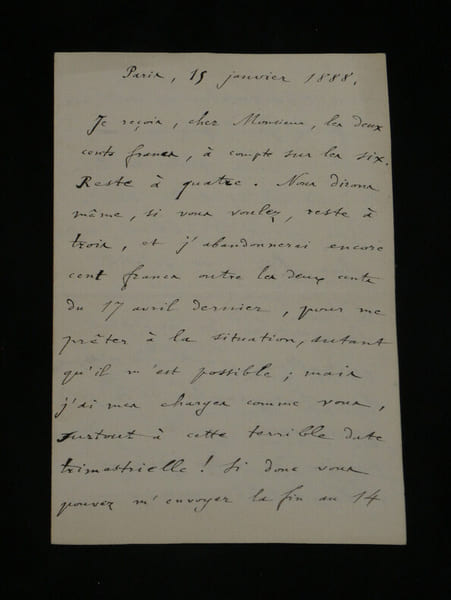 Paris, 15 janvier 1888.
Je reçois, cher Monsieur, les deux
cents francs, à compte sur les six.
Reste à quatre. Nous dirons
même, si vous voulez, reste à
trois, et j'abandonnerai encore
cent francs outre les deux cents
du 17 avril dernier, pour me
prêter à la situation, autant
qu'il m'est possible ; mais
j'ai mes charges comme vous,
surtout à cette terrible date
trimestrielle ! Si donc vous
pouvez m'envoyer la fin au 14